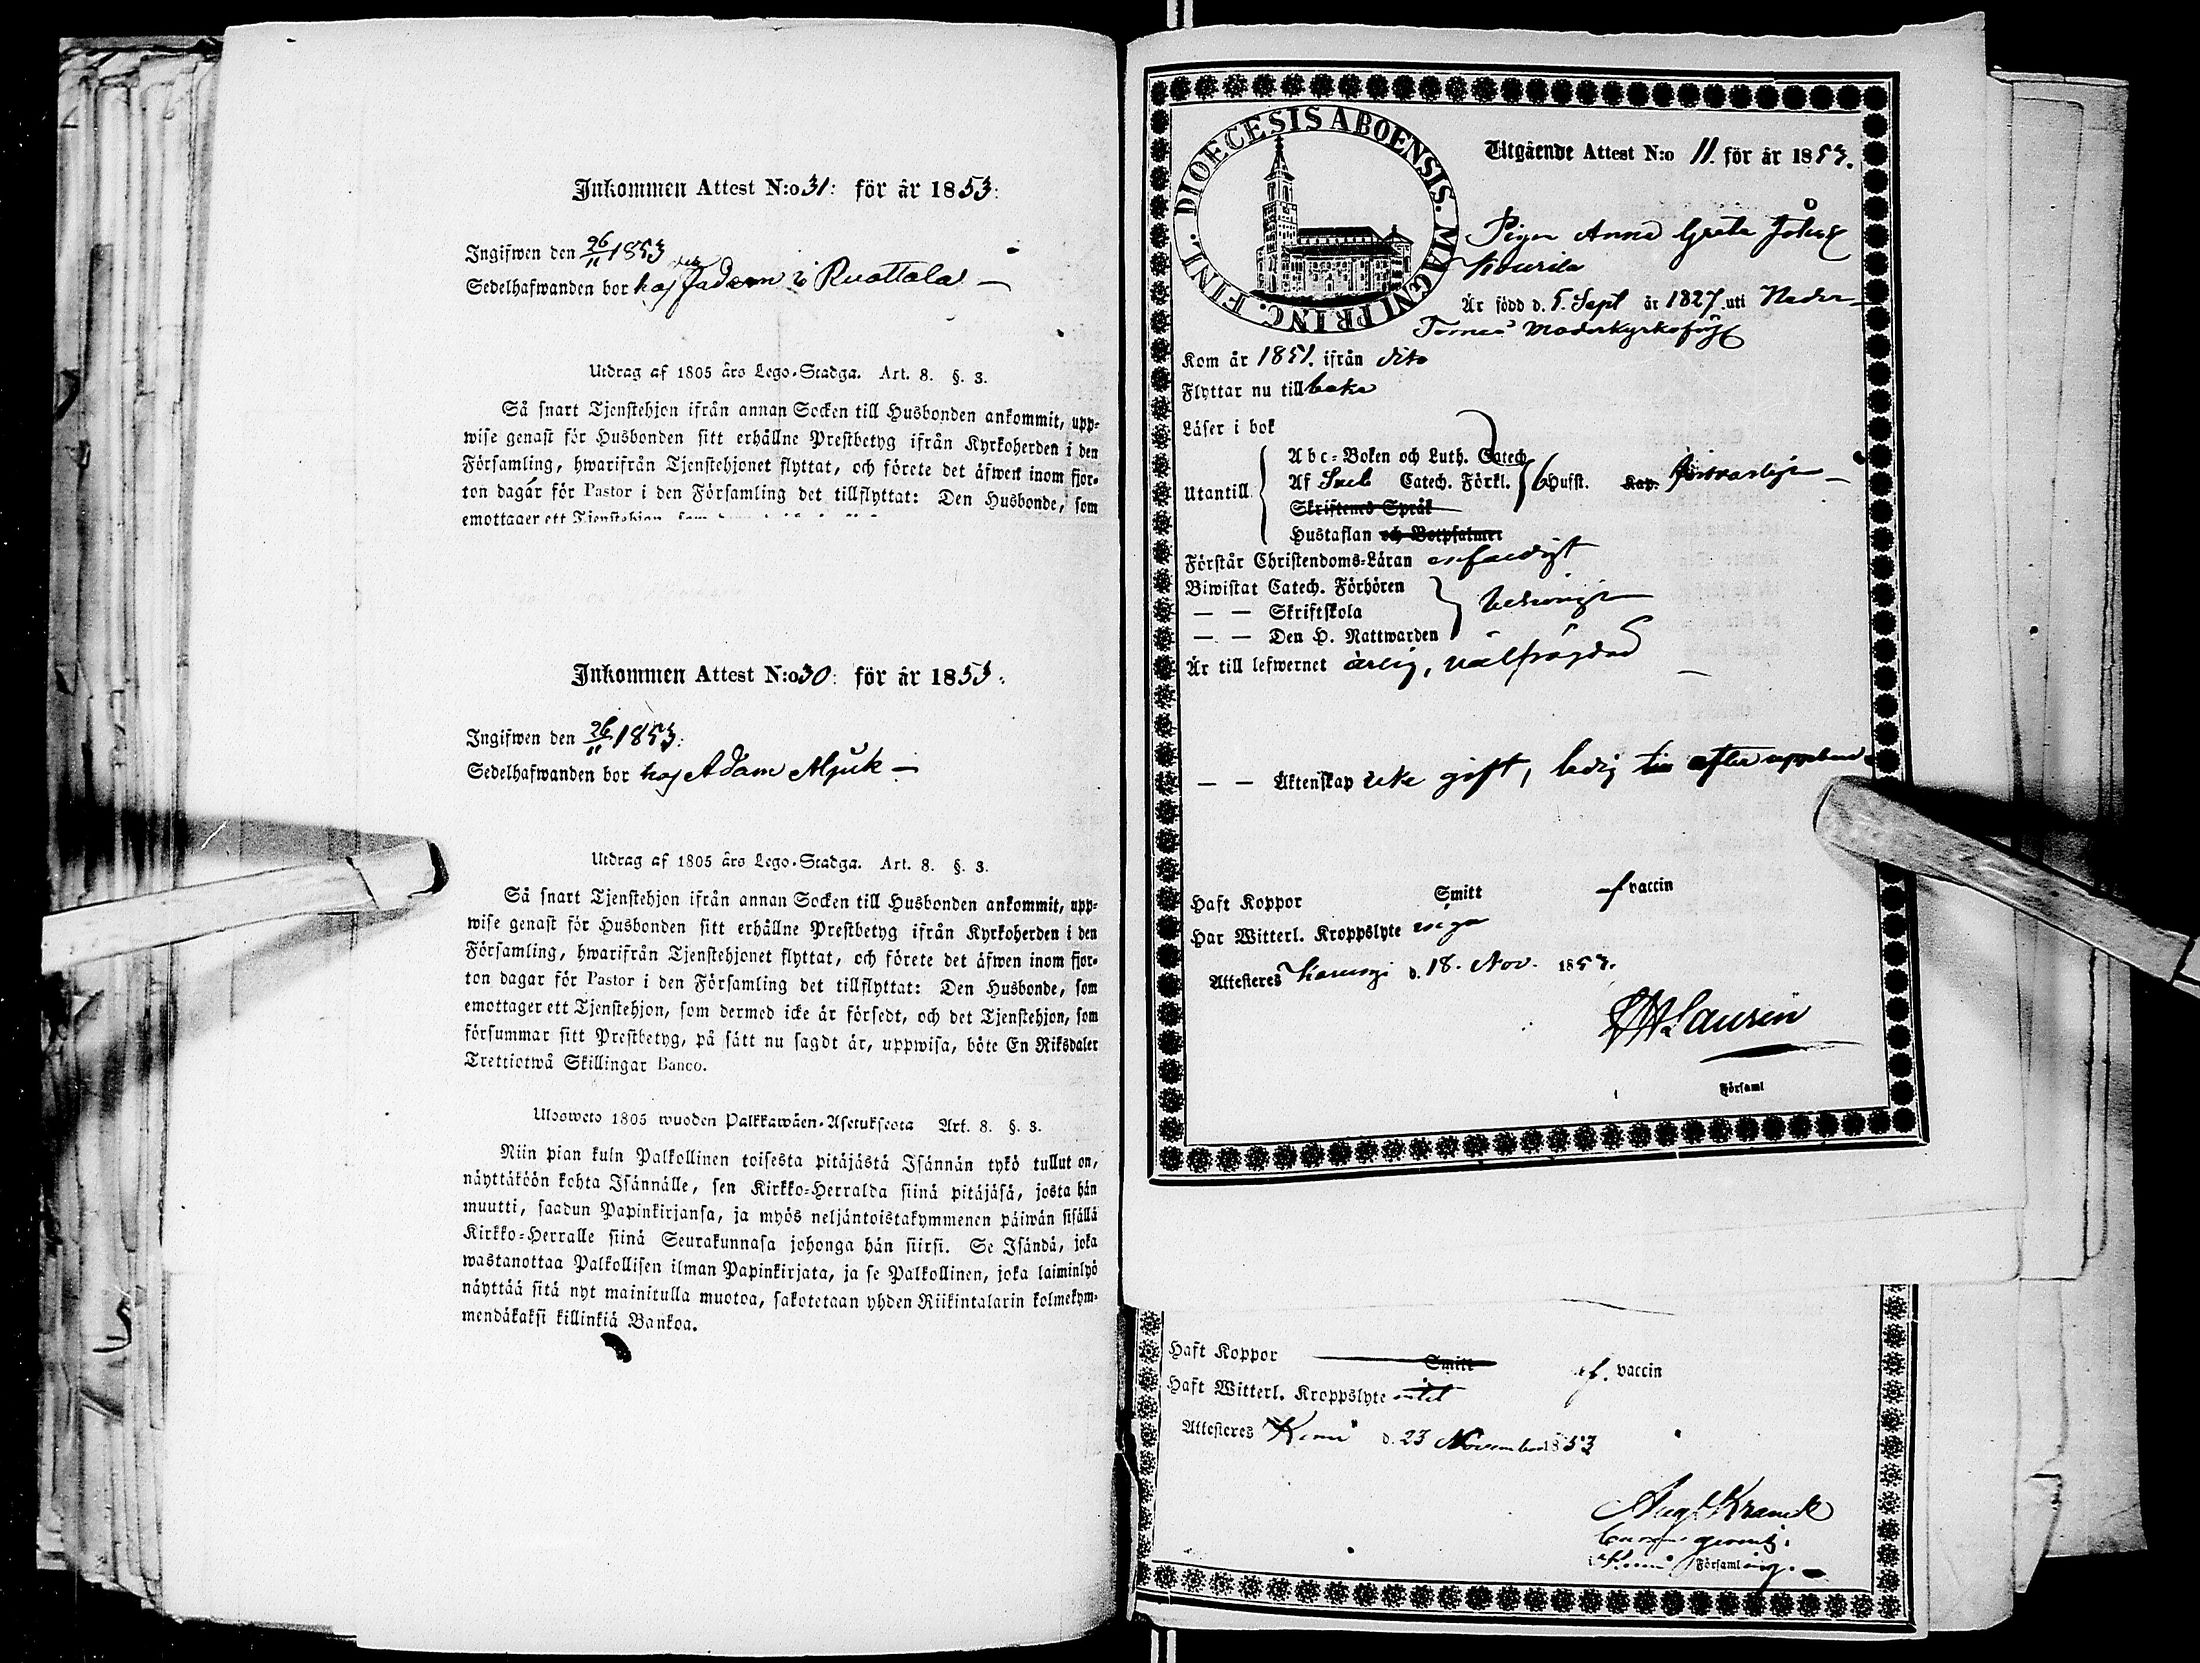 Inkommen Attest N:o 31: för år 1853:
Ingifwen den 26/11 1853
Sedelhafwanden bor hos Fadern i Ruottala —
Utdrag af 1805 års Lego-Stadga. Art. 8. §. 3.
Så snart Tjenstehjon ifrån annan Socken till Husbonden ankommit, upp-
wise genast för Husbonden sitt erhållne Prestbetyg ifrån Kyrkoherden i den
Församling, hwarifrån Tjenstehjonet flyttat, och förete det äfwen inom fjor-
ton dagar för Pastor i den Församling det tillflyttat: Den Husbonde, som
emottager ett Tjenstehjon, som
Inkommen Attest N:o 30: för år 1853:
Ingifwen den 26/11 1853:
Sedelhafwanden bor hos Adam Mjuk —
Utdrag af 1805 års Lego-Stadga. Art. 8. §. 3.
Så snart Tjenstehjon ifrån annan Socken till Husbonden ankommit, upp-
wise genast för Husbonden sitt erhållne Prestbetyg ifrån Kyrkoherden i den
Församling, hwarifrån Tjenstehjonet flyttat, och förete det äfwen inom fjor-
ton dagar för Pastor i den Församling det tillflyttat: Den Husbonde, som
emottager ett Tjenstehjon, som dermed icke är försedt, och det Tjenstehjon, som
försummar sitt Prestbetyg, på sätt nu sagdt är, uppwisa, böte En Riksdaler
Trettiotwå Skillingar Banco.
Ulosweto 1805 wuoden Palkkawäen-Asetuksesta Art. 8. §. 3.
Niin pian kuin Palkollinen toisesta pitäjästä Isännän tykö tullut on,
näyttäköön kohta Isännälle, sen Kirkko-Herralda siinä pitäjäsä, josta hän
muutti, saadun Papinkirjansa, ja myös neljäntoistakymmenen päiwän sisällä
Kirkko-Herralle siinä Seurakunnasa johonga hän siirsi. Se Isändä, joka
wastanottaa Palkollisen ilman Papinkirjata, ja se Palkollinen, joka laiminlyö
näyttää sitä nyt mainitulla muotoa, sakotetaan yhden Riikintalarin kolmekym-
mendäkaksi killinkiä Bankoa.
DIOECESIS ABOENSIS. MAGNI PRINC. FINL.
Utgående Attest N:o 11. för år 1853.
Pigan Anna Greta Johsd
Kourila
Är född d. 5. Sept år 1827. uti Neder-
Torneå Moderkyrkoförs
Kom år 1851. ifrån dito
Flyttar nu tillbaka
Läser i bok
Abc-Boken och Luth. Catech
Utantill Af Sveb Catech. Förkl. Hufst. Kap. försvarligt —
Skriftenes Språk
Hustaflan och Botpsalmer
Förstår Christendoms-Läran enfaldigt
Biwistat Catech. Förhören
— — Skriftskola
— — Den H. Nattwarden
Är till lefwernet ärlig, välfrägdad —
— — Äktenskap icke gift, ledig till efter uppbud.
Haft Koppor Smitt af vaccin
Har Witterl. Kroppslyte inga
Attesteres Karungi d. 18. Nov. 1853.
Laurin
Församl
Haft Koppor Smitt af. vaccin
Haft Witterl. Kroppslyte intet
Attesteres Kemi d. 23 November 1853
Aug Kranck
Kemi Församling.